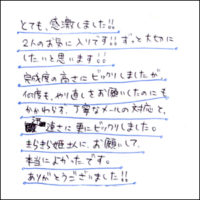 とても、感激しました!!
2人のお気に入りです!! ずっと大切に
したいと思います!!
完成度の高さにビックリしましたが、
何度も、やり直しをお願いしたのにも
かかわらず、丁寧なメールの対応と、
速さに更にビックリしました。
まらまら姫さんに、お願いして、
本当によかったです。
ありがとうございました!!